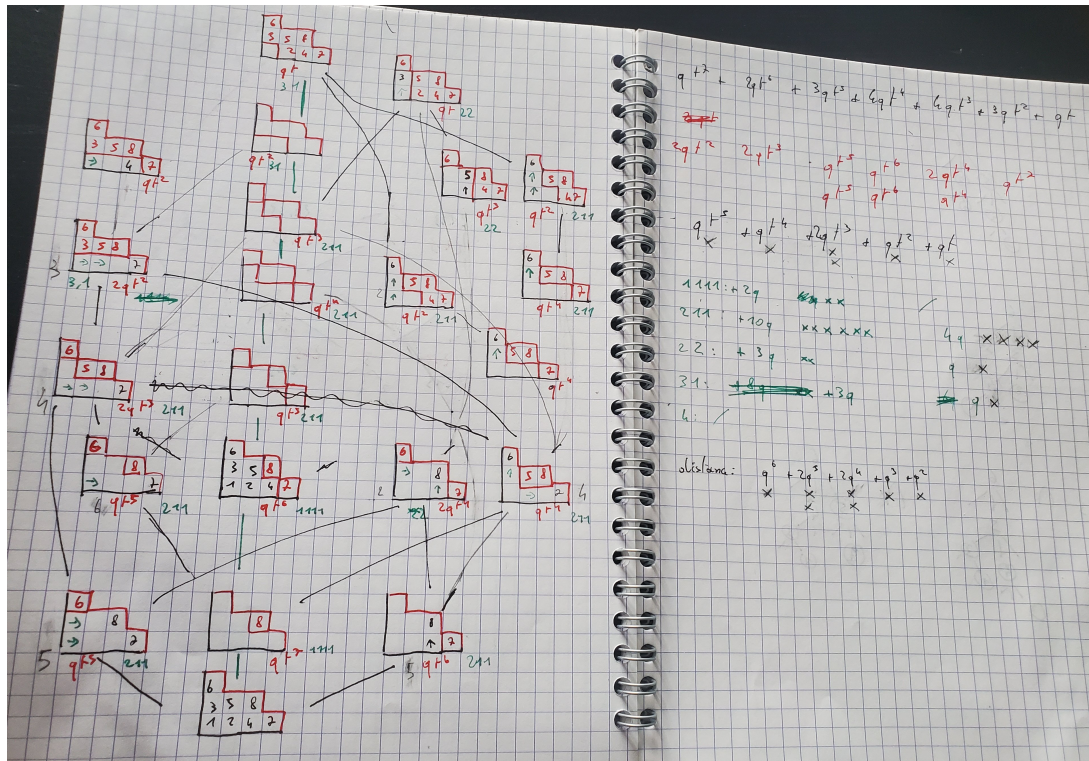 6
3 5 8
2 4 7
qt
31
6
3 5 8
↑ 2 4 7
qt 22
6
3 5 8
→ 4 7
qt²
qt²
31
6
5 8
↑ 4 7
qt³
22
6
↑ 5 8
↑ 4 7
qt²
211
6
3 5 8
→ → 7
3
3,1
2qt²
qt³
211
qt⁴
211
6
↑ 5 8
↑ 4 7
2
qt²
211
6
↑ 5 8
7
qt⁴
211
6
↑ 5 8
7
qt⁴
6
5 8
→ → 7
4
2qt³
211
qt⁵
211
6
8
→ 7
6
qt⁵
211
6
3 5 8
1 2 4 7
qt⁶
1111
6
→ 8
↑ 7
2
2qt⁴
22
6
↑ 5 8
→ 7
4
qt⁴
211
6
→ 8
→ 7
5
qt⁵
211
8
qt⁷
1111
8
↑ 7
5
qt⁶
211
6
3 5 8
1 2 4 7
qt⁷ + 2qt⁶ + 3qt⁵ + 4qt⁴ + 4qt³ + 3qt² + qt
2qt² 2qt³ qt⁵ qt⁶ 2qt⁴ qt²
qt⁵ qt⁶ qt⁴
qt⁵ + qt⁴ + 2qt³ + qt² + qt
x x x x x
x
1111: +2q xx
211: +10q xxxxxx 4q xxxx
22: +3q xx q x
31: +3q q x
4: /
distanza: q⁶ + 2q⁵ + 2q⁴ + q³ + q²
x x x x x
x x